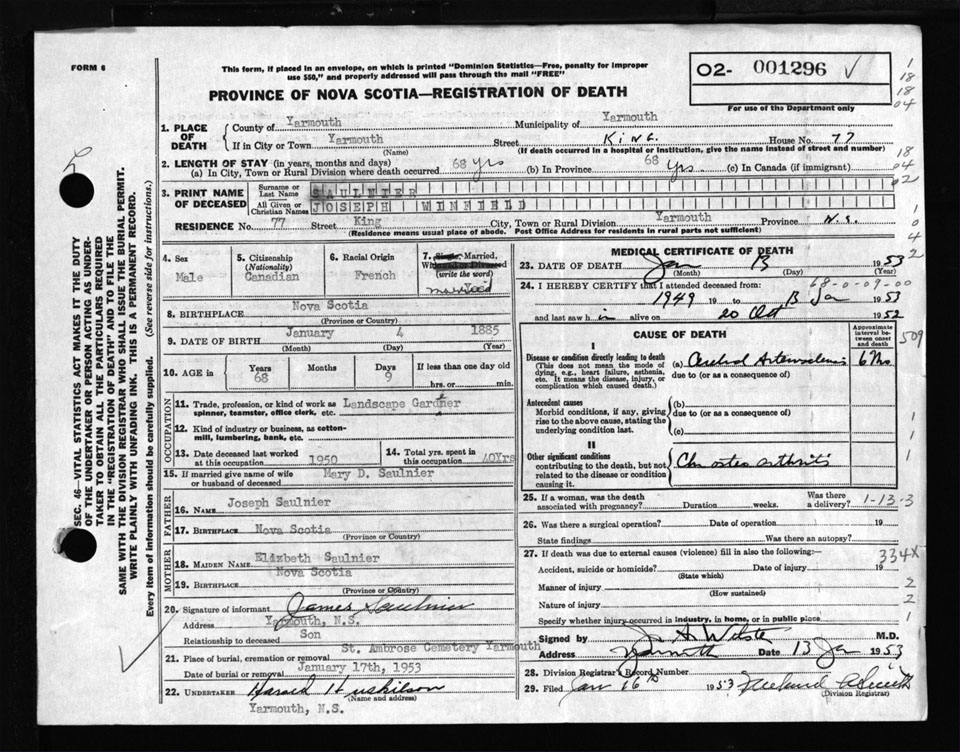 FORM 6
This form, if placed in an envelope, on which is printed "Dominion Statistics—Free, penalty for improper
use $50," and properly addressed will pass through the mail "FREE"
PROVINCE OF NOVA SCOTIA—REGISTRATION OF DEATH
O2- 001296 ✓
For use of the Department only
1
18
18
04
18
04
02
1
0
4
2
1. PLACE OF DEATH
County of Yarmouth Municipality of Yarmouth
If in City or Town Yarmouth Street King House No. 77
(Name) (If death occurred in a hospital or institution, give the name instead of street and number)
2. LENGTH OF STAY (in years, months and days)
(a) In City, Town or Rural Division where death occurred 68 yrs (b) In Province 68 yrs. (c) In Canada (if immigrant)
3. PRINT NAME OF DECEASED
Surname or Last Name SAULNIER
All Given or Christian Names JOSEPH WINFIELD
RESIDENCE No. 77 Street King City, Town or Rural Division Yarmouth Province N.S.
(Residence means usual place of abode. Post Office Address for residents in rural parts not sufficient)
SEC. 46—VITAL STATISTICS ACT MAKES IT THE DUTY
OF THE UNDERTAKER OR PERSON ACTING AS UNDER-
TAKER TO OBTAIN ALL THE PARTICULARS REQUIRED
IN THE "REGISTRATION OF DEATH" AND TO FILE THE
SAME WITH THE DIVISION REGISTRAR WHO SHALL ISSUE THE BURIAL PERMIT.
WRITE PLAINLY WITH UNFADING INK. THIS IS A PERMANENT RECORD.
Every item of information should be carefully supplied. (See reverse side for instructions.)
4. Sex
Male
5. Citizenship
(Nationality)
Canadian
6. Racial Origin
French
7. Single, Married,
Widowed or Divorced
(write the word)
married
8. BIRTHPLACE Nova Scotia
(Province or Country)
9. DATE OF BIRTH January 4 1885
(Month) (Day) (Year)
10. AGE Years 68 Months Days 9 If less than one day old
hrs. or min.
OCCUPATION
11. Trade, profession, or kind of work as Landscape Gardner
spinner, teamster, office clerk, etc.
12. Kind of industry or business, as cotton-
mill, lumbering, bank, etc.
13. Date deceased last worked
at this occupation 1950
14. Total yrs. spent in
this occupation 40Yrs
15. If married give name of wife
or husband of deceased Mary D. Saulnier
FATHER
16. Name Joseph Saulnier
17. Birthplace Nova Scotia
(Province or Country)
MOTHER
18. Maiden Name Elizbeth Saulnier
19. Birthplace Nova Scotia
(Province or Country)
20. Signature of informant James Saulnier
Address Yarmouth, N.S.
Relationship to deceased Son
21. Place of burial, cremation or removal St. Ambrose Cemetery Yarmouth
Date of burial or removal January 17th, 1953
22. UNDERTAKER Harold Huskilson
(Name and address)
Yarmouth, N.S.
MEDICAL CERTIFICATE OF DEATH
23. DATE OF DEATH Jan 13 1953
(Month) (Day) (Year)
68-0-09-00
24. I HEREBY CERTIFY that I attended deceased from
1949 19 to 13 Jan 1953
and last saw h im alive on 20 Oct 1952
CAUSE OF DEATH
Approximate
interval between
onset
and death
509
I
Disease or condition directly leading to death
(This does not mean the mode of
dying, e.g., heart failure, asthenia,
etc. It means the disease, injury, or
complication which caused death.)
(a) Cerebral Arteriosclerosis
due to (or as a consequence of)
Antecedent causes
Morbid conditions, if any, giving
rise to the above cause, stating the
underlying condition last.
(b)
due to (or as a consequence of)
(c)
1
1
II
Other significant conditions
contributing to the death, but not
related to the disease or condition
causing it.
Chr osteo arthritis
1
25. If a woman, was the death
associated with pregnancy? Duration weeks. Was there
a delivery? 1-13-3
26. Was there a surgical operation? Date of operation 19
State findings Was there an autopsy?
27. If death was due to external causes (violence) fill in also the following:—
334X
Accident, suicide or homicide? Date of injury 19
(State which)
Manner of injury 2
(How sustained)
Nature of injury 2
Specify whether injury occurred in industry, in home, or in public place 1
Signed by M.D.
Address Yarmouth Date 13 Jan 1953
28. Division Registrar's Record Number
29. Filed Jan 16th 1953
(Division Registrar)